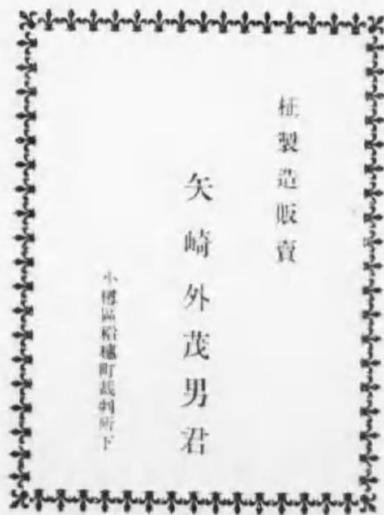 柾製造販賣
矢崎外茂男君
小樽區稻穂町裁判所下